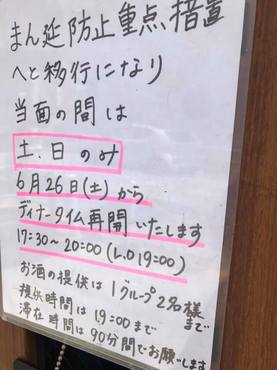 まん延防止重点措置
へと移行になり
当面の間は
土、日のみ
6月26日(土)から
ディナータイム再開いたします
17:30〜20:00(L.O 19:00)
お酒の提供は1グループ2名様まで
提供時間は19:00まで
滞在時間は90分間でお願いします